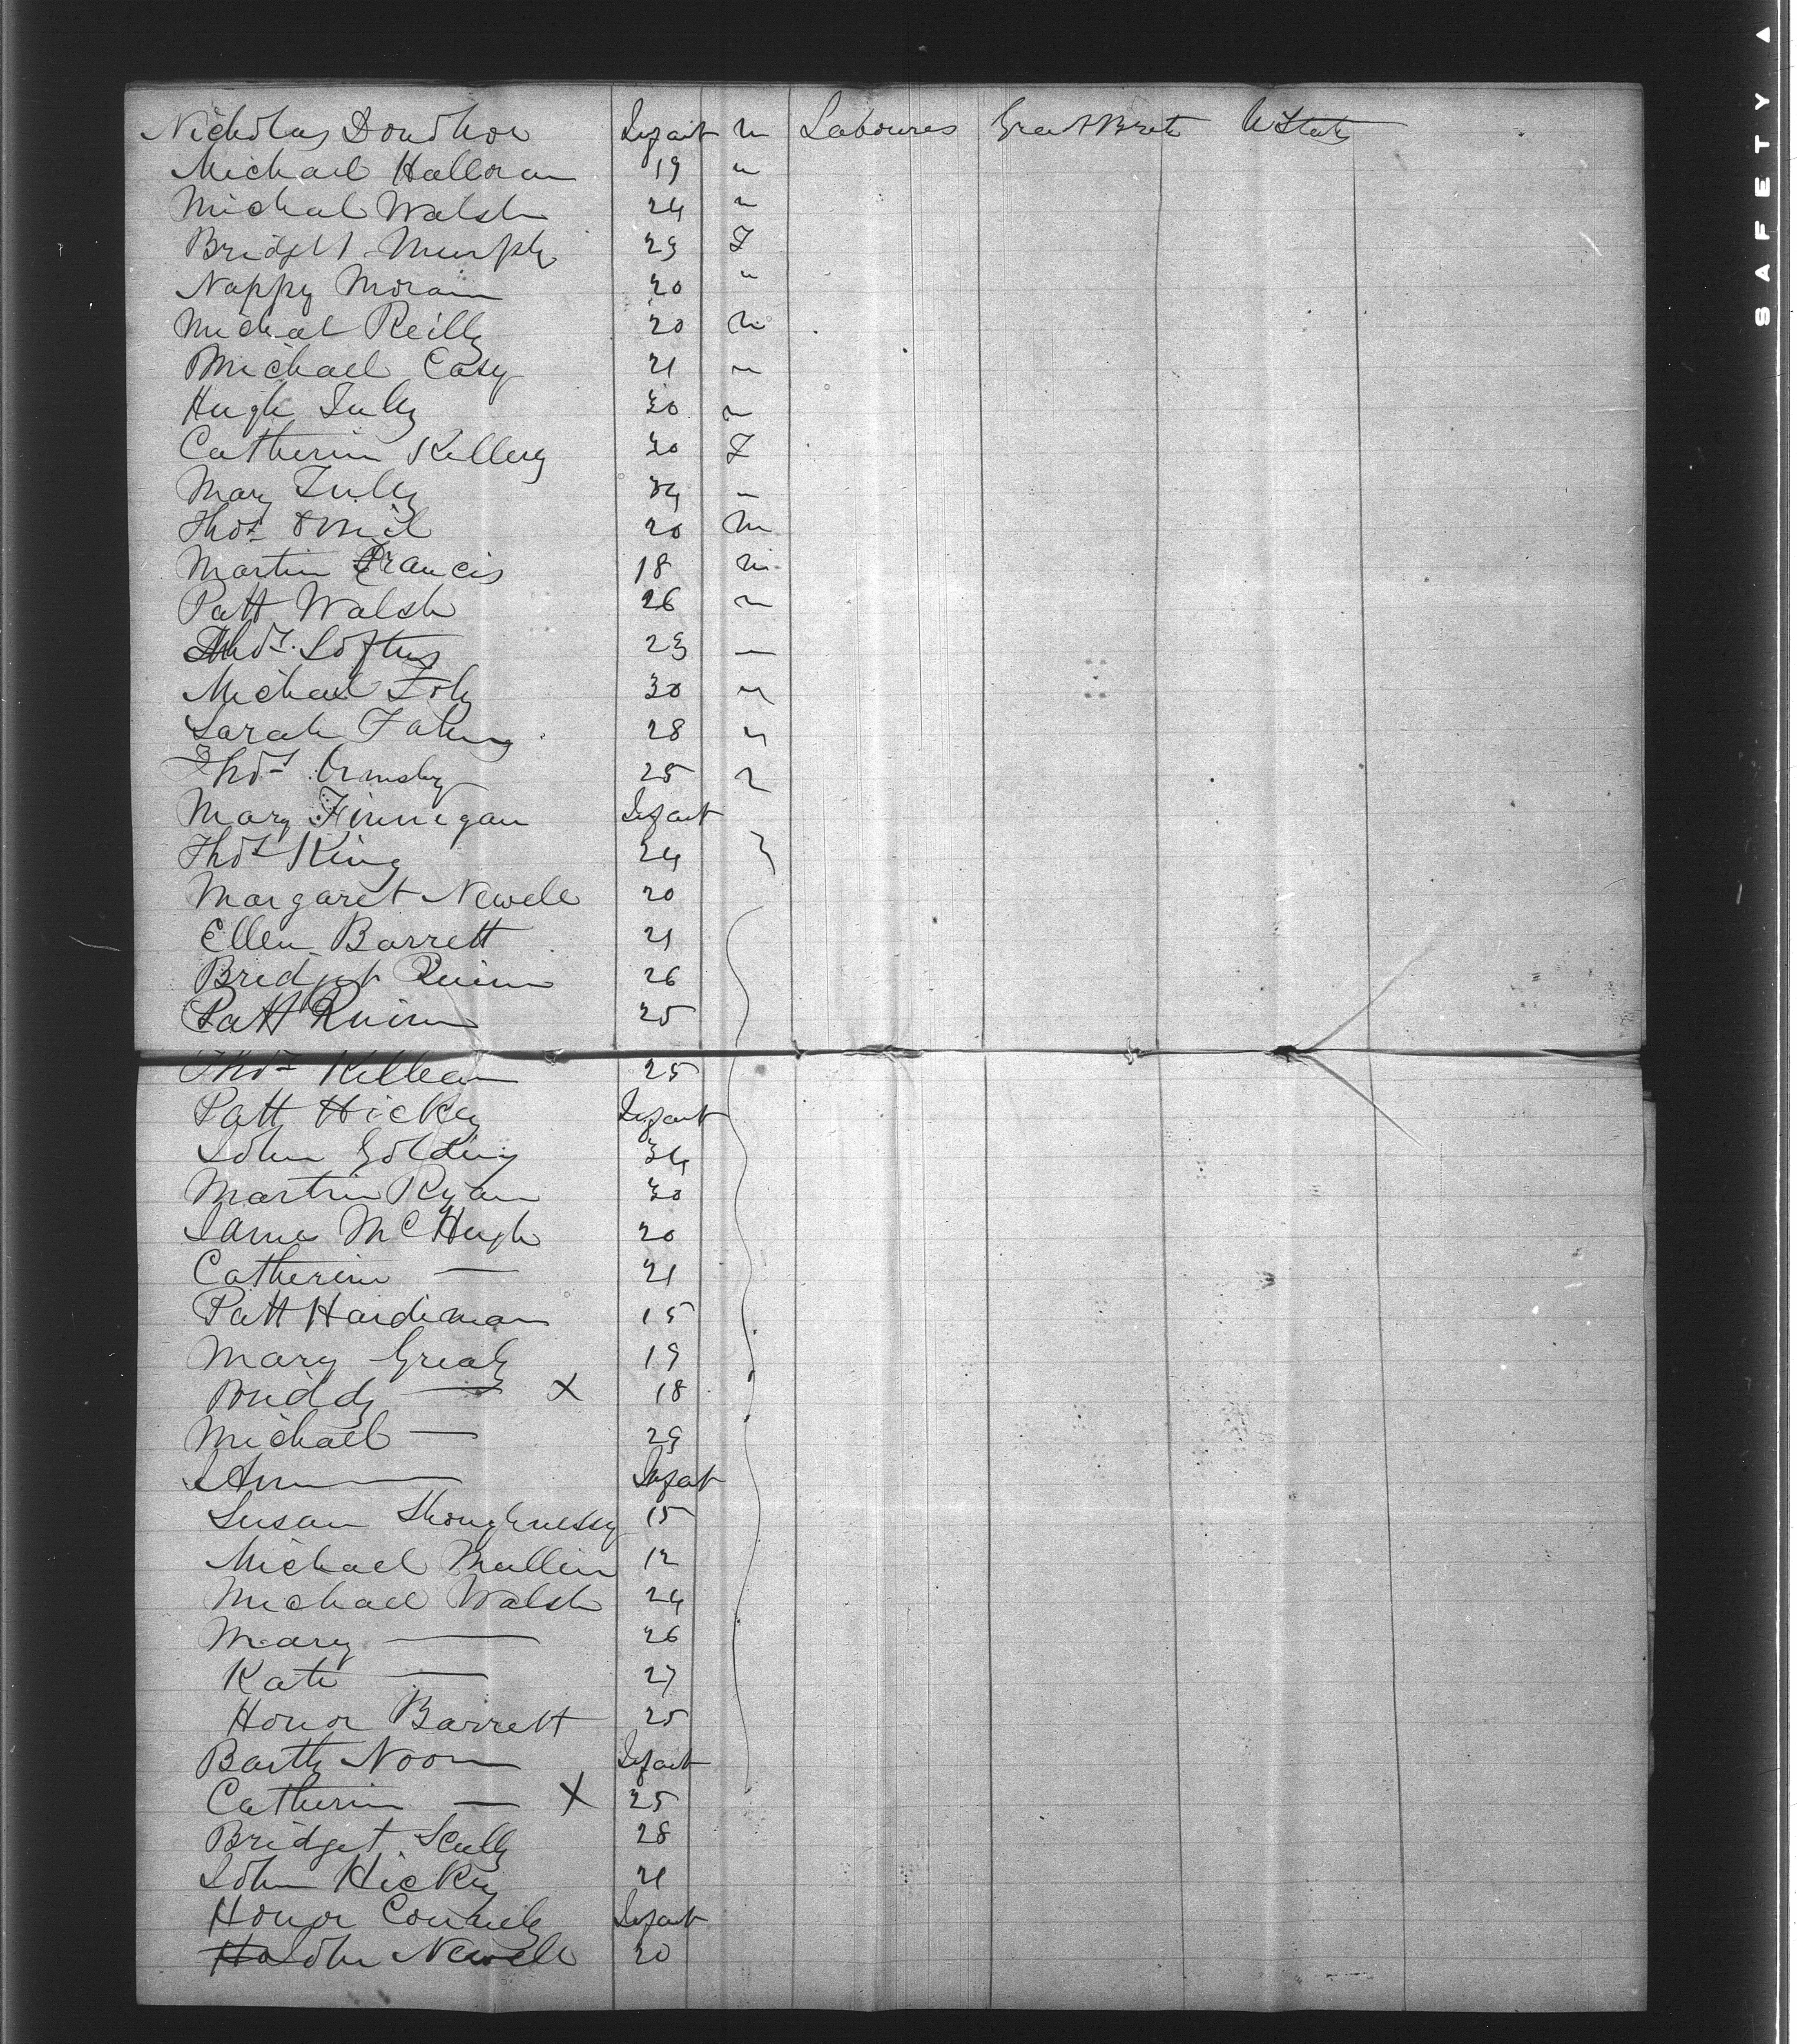 Nicholas Donohoe Infant m Laboures Great Brit U State
Michael Halloran 19 "
Michael Walsh 24 "
Bridget Murphy 23 F
Nappy Moran 20 "
Michal Reilly 20 m
Michael Casy 21 "
Hugh Tully 30 "
Catherin Kelley 30 F
Mary Tully 24 "
Thos 20 m
Martin Francis 18 m
Patt Walsh 26 "
Thos. Loftus 23 —
Michael Foly 30 "
Sarah Fahy 28 "
Thos Ormsby 25 "
Mary Finnegan Infant
Thos King 24 "
Margaret Newell 20
Ellen Barrett 21
Bridget Quinn 26
Patt Quinn 25
Thos Killean 25
Patt Hickey Infant
John Golding 34
Martin Ryan 30
James McHugh 20
Catherin — 21
Patt Hardiman 15
Mary Grealy 19
Biddy — X 18
Michael — 29
Ann — Infant
Susan Shoughnessy 15
Michael Mullin 12
Michael Walsh 24
Mary — 26
Kate — 27
Honor Barrett 25
Barth Noon Infant
Catherin — X 25
Bridget Scully 28
John Hickey 21
Honor Connely Infant
John Newell 20
SAFETY